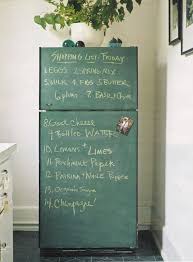 Shopping List Friday
1. Eggs 2. Spring Mix
3. Milk 4. Figs 5. Butter
6. plums 7. Basil
8. Goat Cheese
9. Bottled Water
10. Lemons + Limes
11. Parchment Paper
12. Paper
13. Organic Soap
14. Champagne!